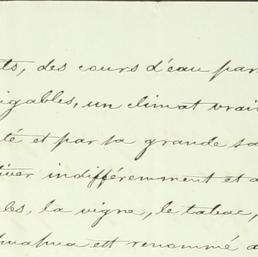 ts, des cours d'eau par
igables, un climat vrai
té et par sa grande sa
iver indifféremment et a
les, la vigne, le tabac,
huahua est renommé d